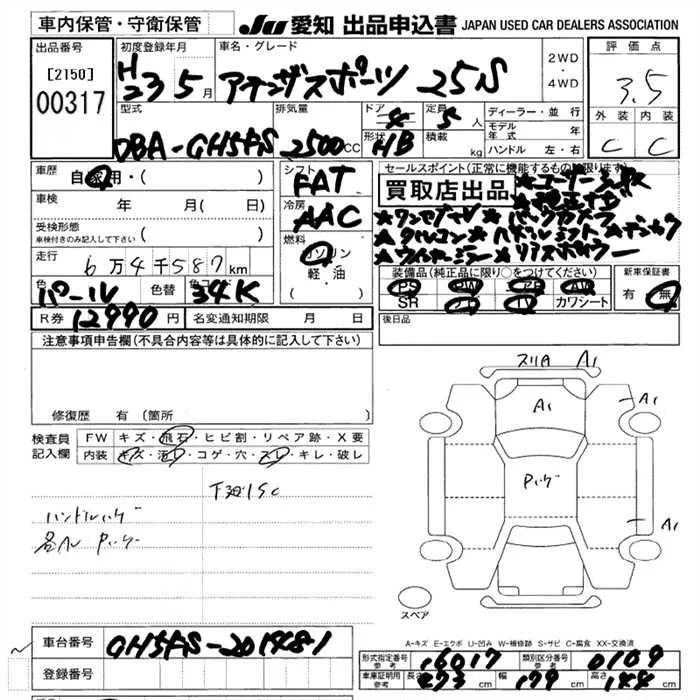 車内保管・守衛保管
JU 愛知 出品申込書 JAPAN USED CAR DEALERS ASSOCIATION
出品番号 初度登録年月 車名・グレード 2WD・4WD 評価点
[2150] H23 5月 アテンザスポーツ 25S 3.5
00317
型式 排気量 ドア 4 定員 5人 ディーラー・並行 外装 内装
DBA-GH5FS 2500CC 形状 HB 積載 kg モデル年式 年 C C
ハンドル 左・右
車歴 自家用・( ) シフト セールスポイント(正常に機能するもの限ります)
FAT 買取店出品
車検 年 月( 日) 冷房
AAC ★ワンセグTV ★バックカメラ
受検形態
車検付きのみ記入して下さい 燃料
走行 6万4千587km ガソリン
軽・油
装備品(純正品に限り○をつけてください) 新車保証書
色 パール 色替 色コード 34K PS PW AW 有 無
SR TV カワシート
R券 12990円 名変通知期限 月 日 後日品
注意事項申告欄(不具合内容等は具体的に記入して下さい)
修復歴 有 (箇所
スリA A1
A1 A1
検査員記入欄 FW キズ・飛石・ヒビ割・リペア跡・X要
内装 キズ・汚レ・コゲ・穴・スレ・キレ・破レ
Pハゲ
ハンドルハゲ
A1
スペア
A-キズ E-エクボ U-凹み W-補修跡 S-サビ C-腐食 XX-交換済
車台番号 GH5FS-201481
登録番号
形式指定番号 参考 16017 類別区分番号 参考 0109
車庫証明用 参考 長さ 473cm 幅 179cm 高さ 144cm